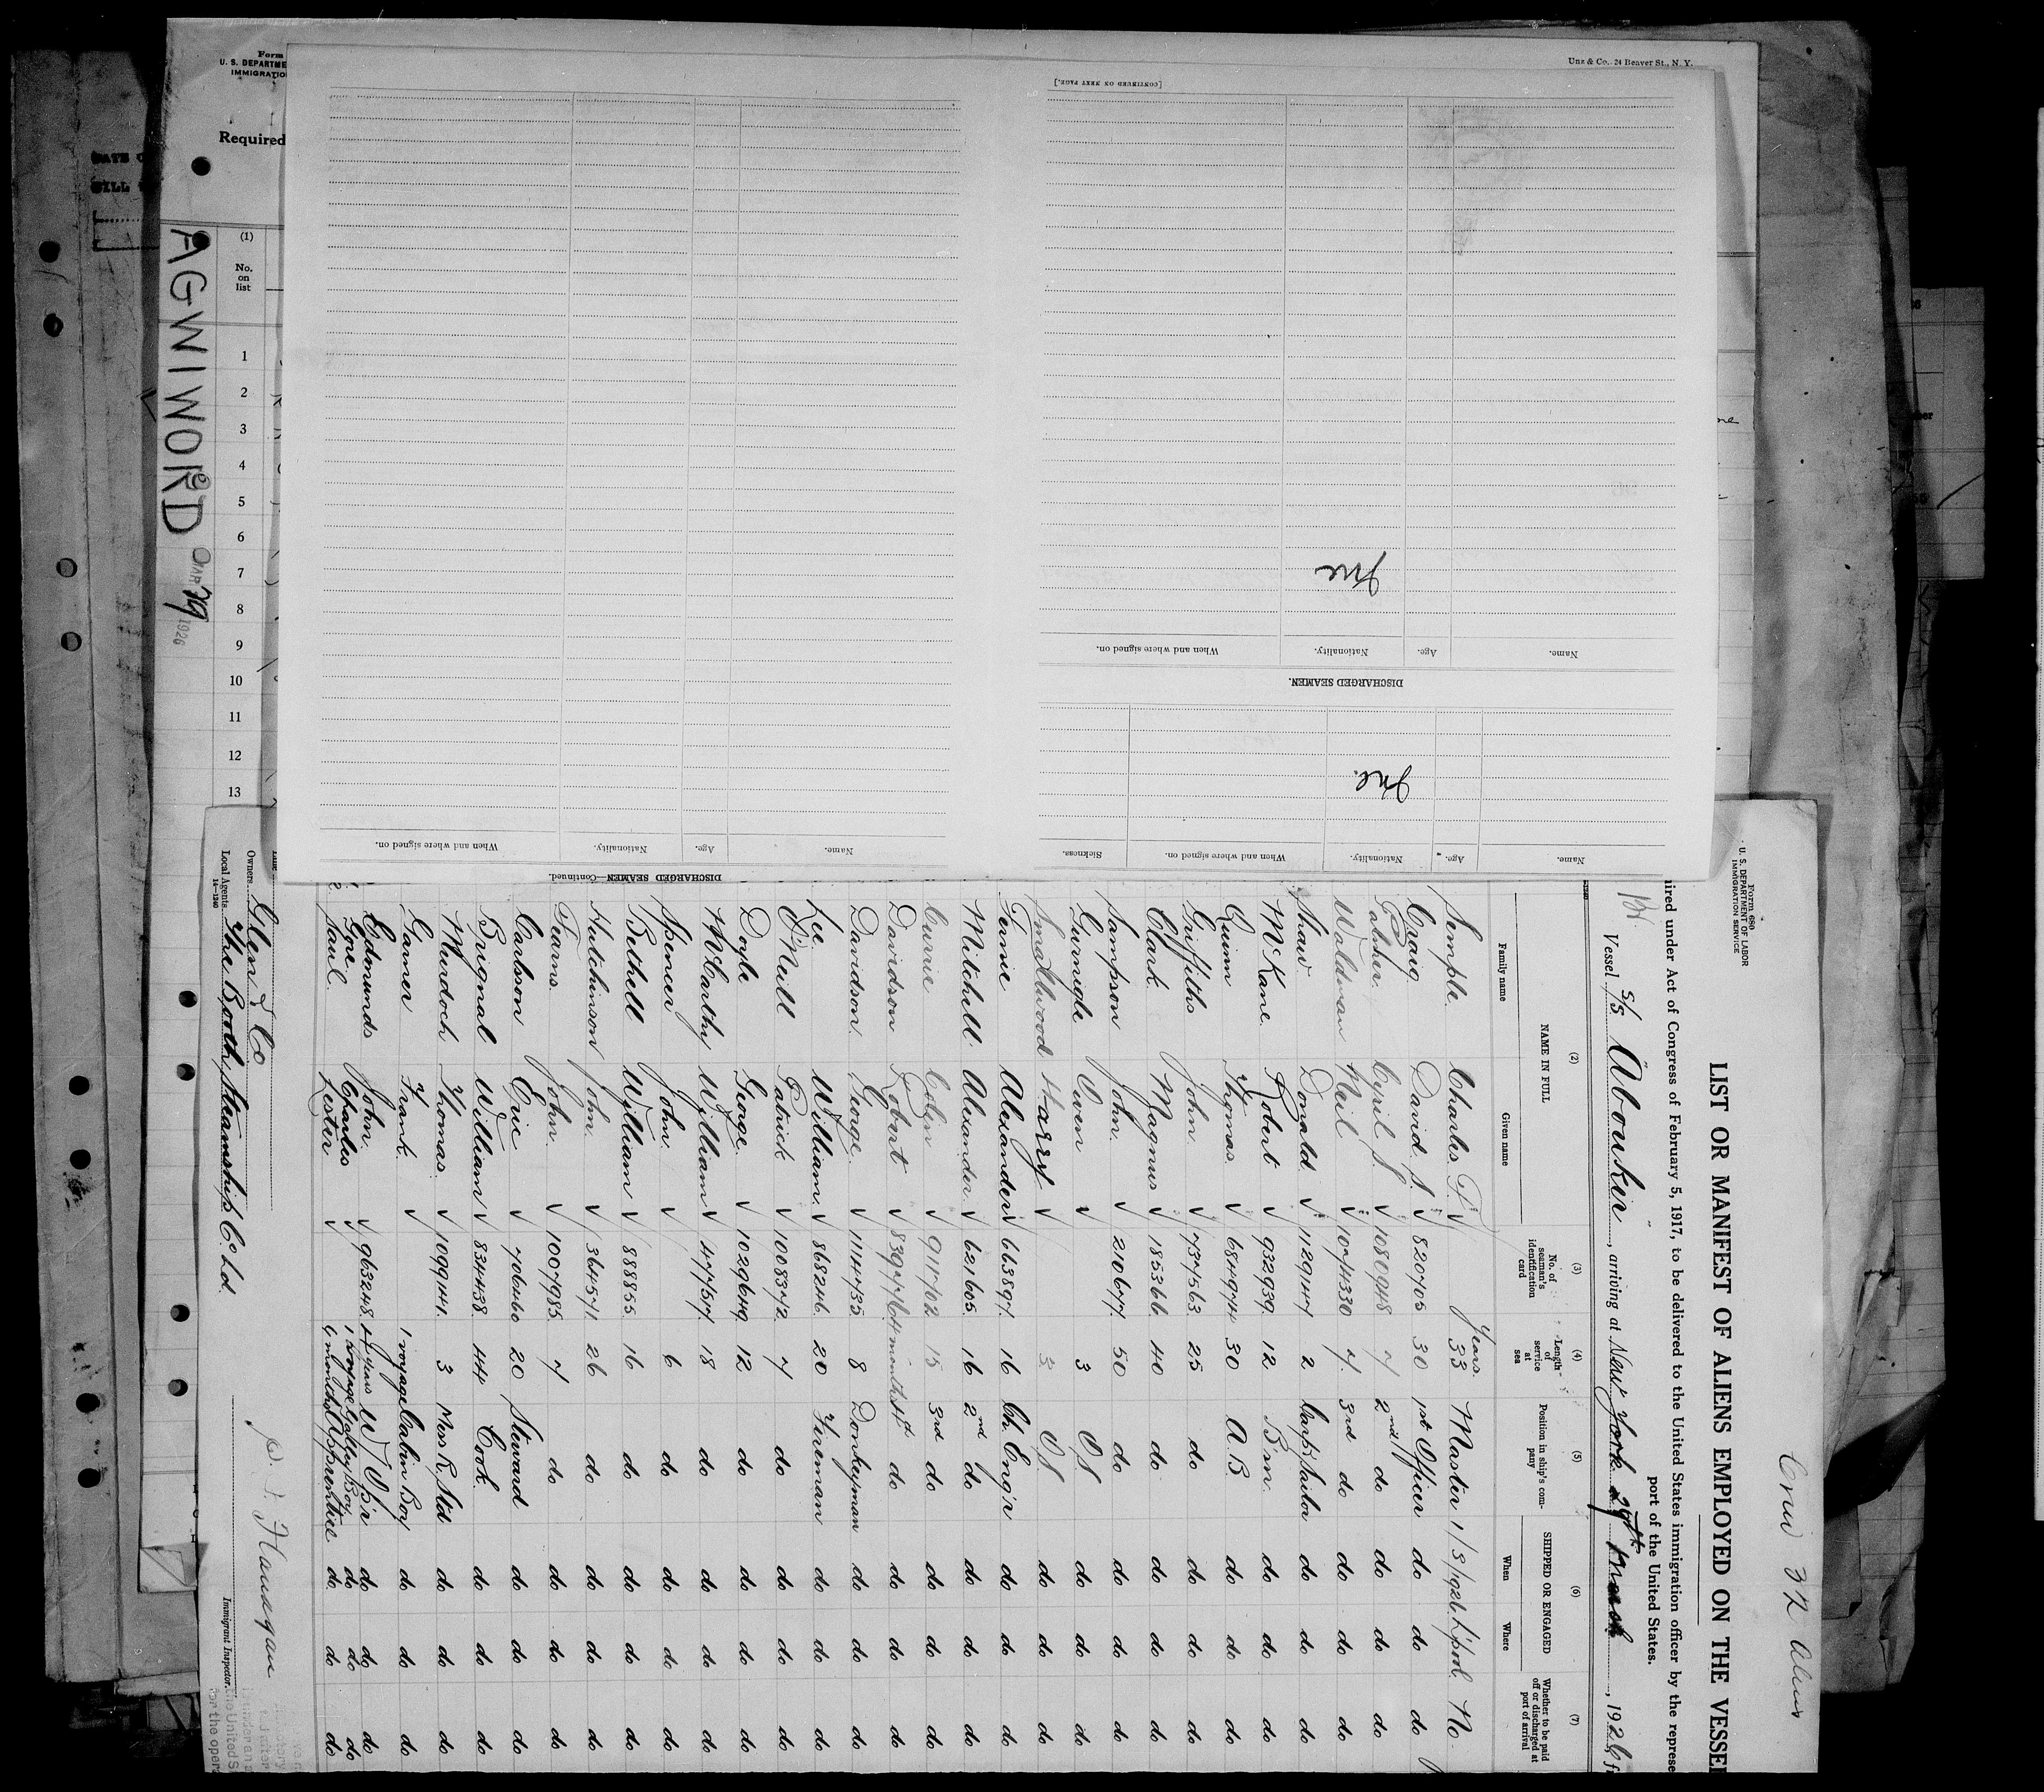 Form
U. S. DEPARTME
IMMIGRATIO
Required
Unz & Co., 24 Beaver St., N. Y.
(1)
No.
on
list
1
2
3
4
5
6
7
8
9
10
11
12
13
AGWIWORLD
MAR 29 1926
[CONTINUED ON NEXT PAGE.]
Name. Age. Nationality. When and where signed on.
DISCHARGED SEAMEN.
Name. Age. Nationality. When and where signed on. Sickness.
DISCHARGED SEAMEN—Continued.
Name. Age. Nationality. When and where signed on.
Crew 32 Aliens
Form 680
U. S. DEPARTMENT OF LABOR
IMMIGRATION SERVICE
LIST OR MANIFEST OF ALIENS EMPLOYED ON THE VESSEL
ired under Act of Congress of February 5, 1917, to be delivered to the United States immigration officer by the represe
port of the United States.
Vessel S/S "Aboukir", arriving at New York 29th March, 1926, f
(2) (3) (4) (5) (6) (7)
NAME IN FULL
Family name Given name
No. of seaman's identification card
Length of service at sea
Position in ship's company
SHIPPED OR ENGAGED
When Where
Whether to be paid off or discharged at port of arrival
Years
Semple Charles T. 33 Master 1/3/1926 L'pool No
Craig David S. 820705 30 1st Officer do do do
Cyril S. 1080948 7 2nd do do do do
Waldman Neil 1074330 7 3rd do do do do
Shaw Donald 1129147 2 Carp/Sailor do do do
McKane Robert 932939 12 B'm do do do
Quinn Thomas 684974 30 A.B. do do do
Griffiths John 737563 25 do do do do
Clark Magnus 185366 40 do do do do
Sampson John 210677 50 do do do do
Gurnigle Owen 3 OS do do do
Smallwood Harry 3 OS do do do
Fernie Alexander 663897 16 Ch. Eng'r do do do
Mitchell Alexander 621605 16 2nd do do do do
Currie Colin 911702 15 3rd do do do do
Davidson Robert months 4th do do do do
Davidson George 1114735 8 Donkeyman do do do
Lee William 868246 20 Fireman do do do
O'Neill Patrick 1008372 7 do do do do
Doyle George 1029649 12 do do do do
McCarthy William 477517 18 do do do do
Spencer John 6 do do do do
Bethell William 888855 16 do do do do
Hutchinson John 364571 26 do do do do
Fearns John 1007985 7 do do do do
Carlsson Eric 706460 20 Steward do do do
Brignal William 834438 44 Cook do do do
Murdoch Thomas 1099441 3 Mess R. Std do do do
Garner Frank 1 voyage Cabin Boy do do do
Edmunds John 963248 4 years W/Op'r do do do
Goe Charles 1 voyage Galley Boy do do do
Saul Lester 6 months Apprentice do do do
Owners Glen & Co
Local Agents The Booth Steamship Co. Ld.
14—1240
Immigrant Inspector.